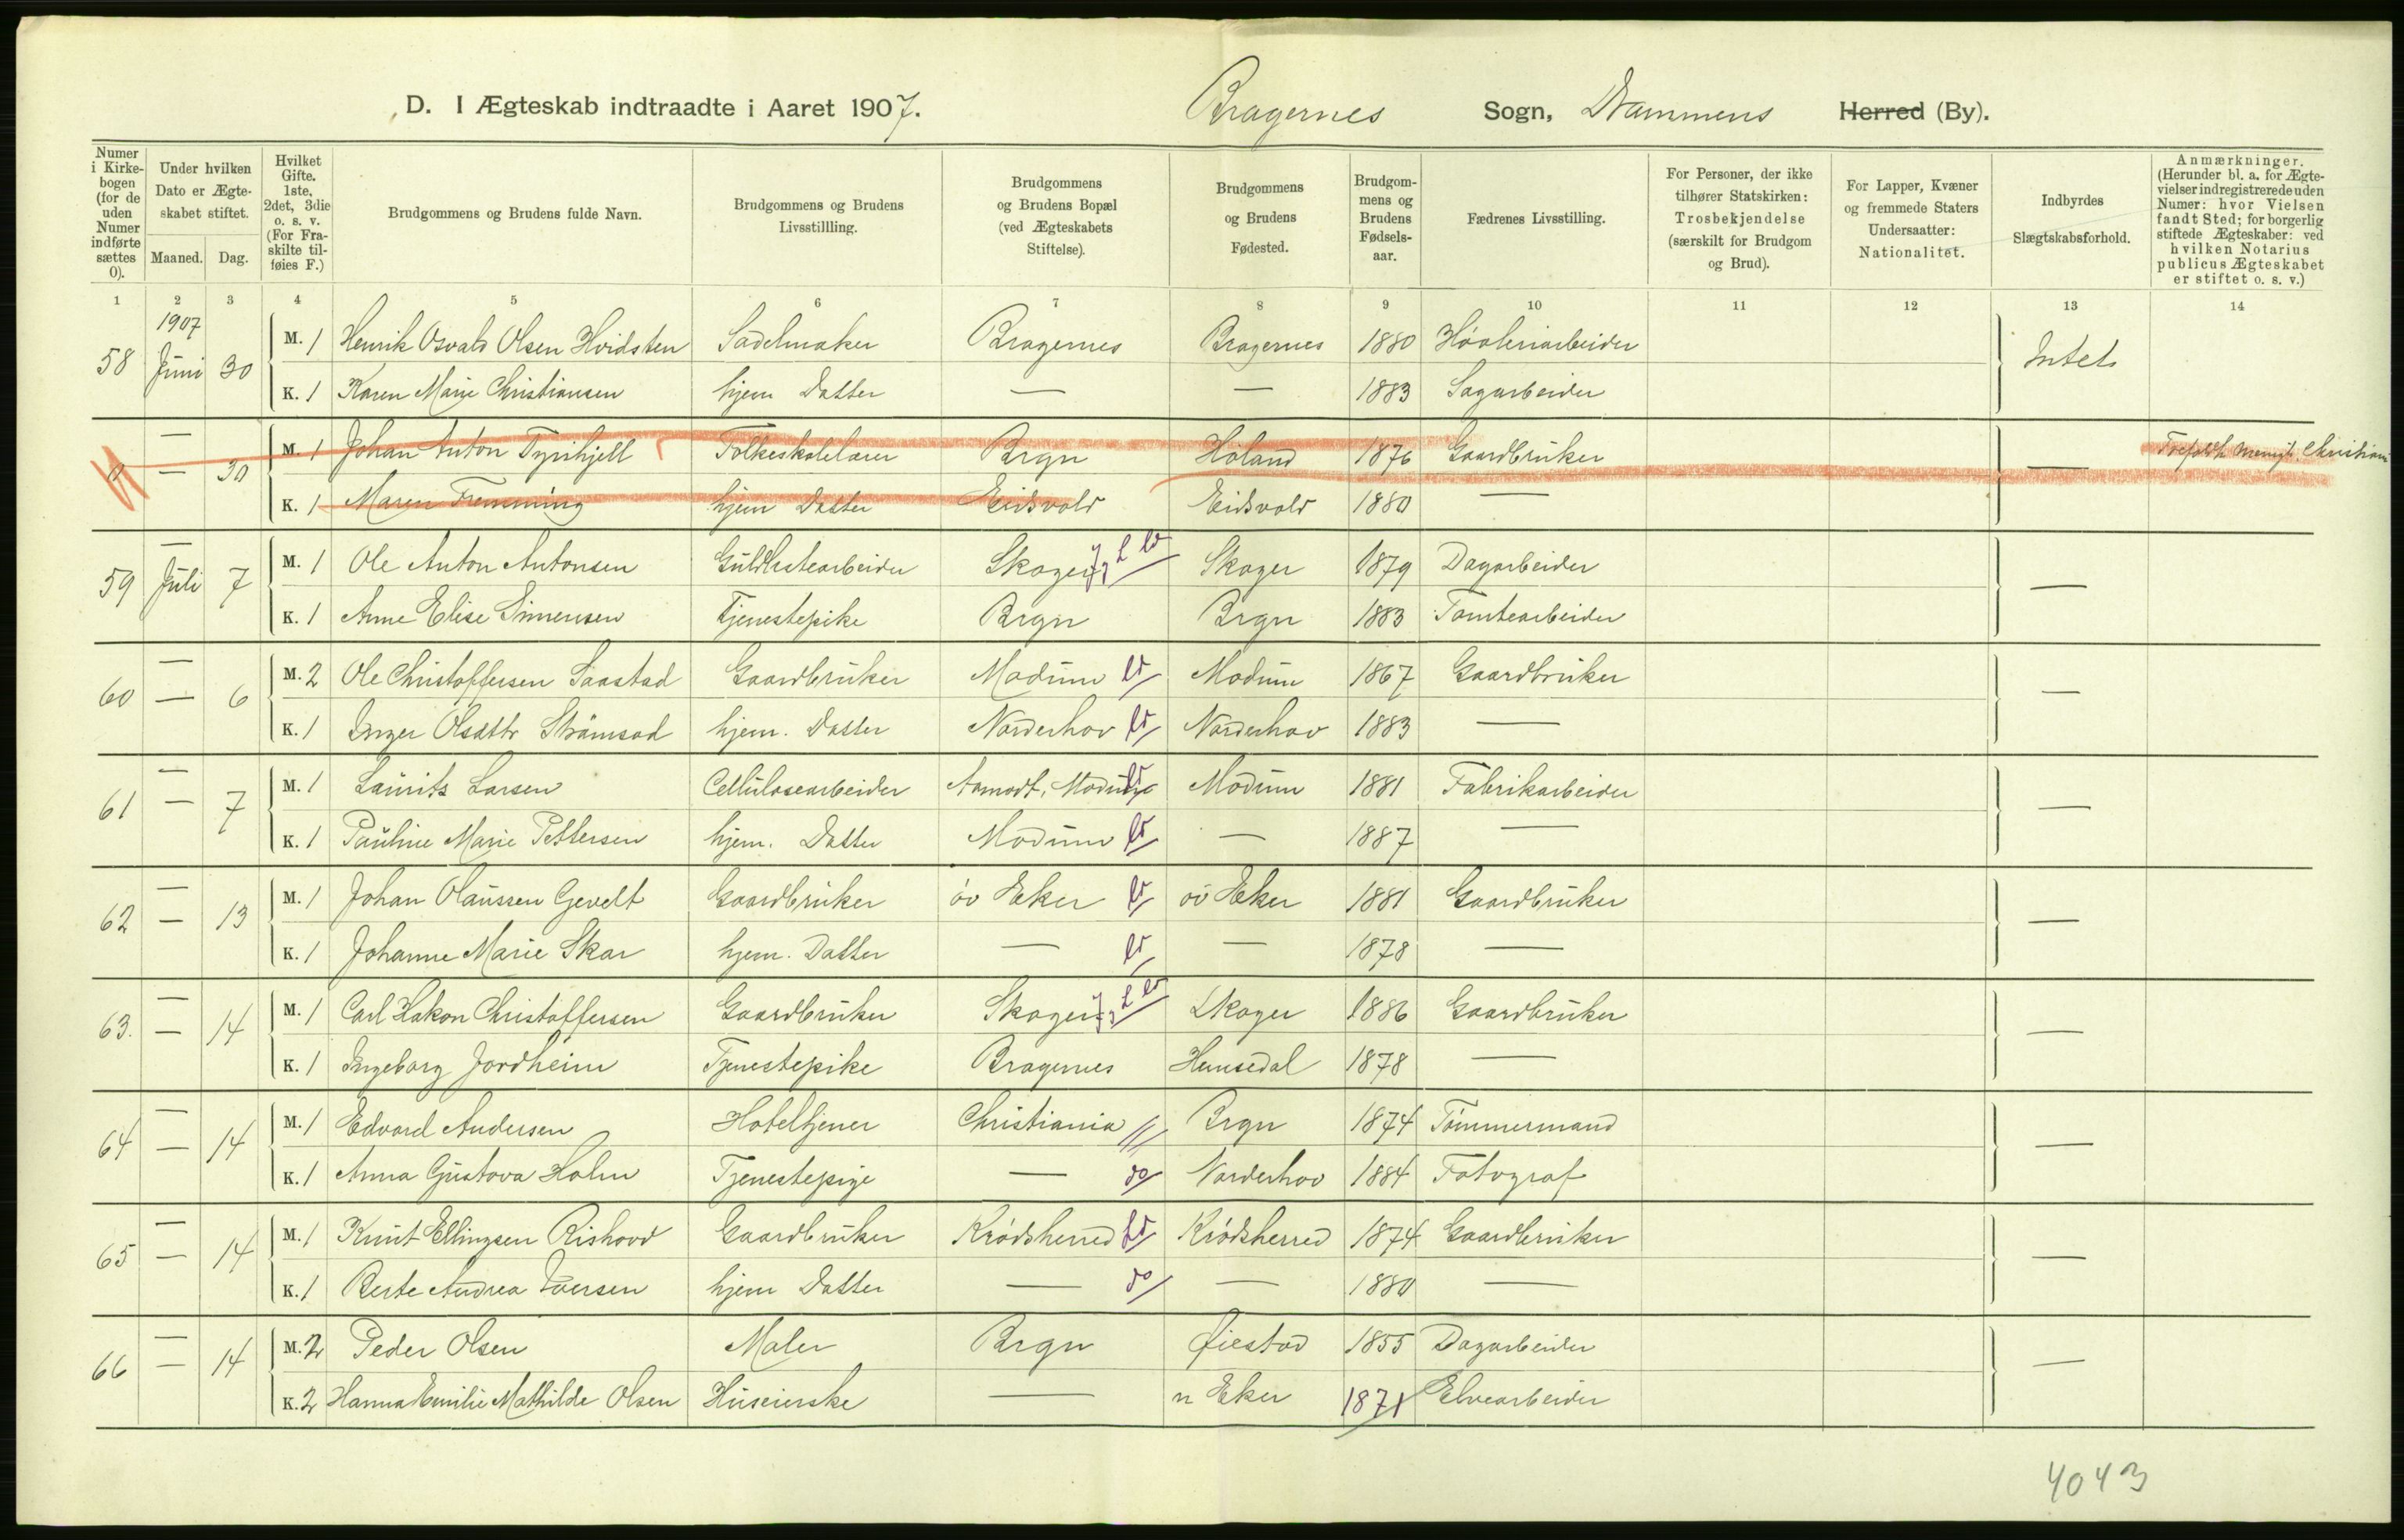 D. I Ægteskab indtraadte i Aaret 1907. Bragernes Sogn, Drammens Herred (By).
Numer i Kirkebogen (for de uden Numer indførte sættes 0).
Under hvilken Dato er Ægteskabet stiftet.
Maaned. Dag.
Hvilket Gifte. 1ste, 2det, 3die o. s. v. (For Fraskilte tilføies F.)
Brudgommens og Brudens fulde Navn.
Brudgommens og Brudens Livsstillling.
Brudgommens og Brudens Bopæl (ved Ægteskabets Stiftelse).
Brudgommens og Brudens Fødested.
Brudgommens og Brudens Fødselsaar.
Fædrenes Livsstilling.
For Personer, der ikke tilhører Statskirken: Trosbekjendelse (særskilt for Brudgom og Brud).
For Lapper, Kvæner og fremmede Staters Undersaatter: Nationalitet.
Indbyrdes Slægtskabsforhold.
Anmærkninger. (Herunder bl. a. for Ægtevielser indregistrerede uden Numer: hvor Vielsen fandt Sted; for borgerlig stiftede Ægteskaber: ved hvilken Notarius publicus Ægteskabet er stiftet o. s. v.)
1 2 3 4 5 6 7 8 9 10 11 12 13 14
1907
58 Juni 30 M. 1 Henrik Osvald Olsen Hvidsten Sadelmaker Bragernes Bragernes 1880 Høvleriarbeider Intet
K. 1 Karen Marie Christiansen hjem Datter — — 1883 Sagarbeider
0 — 30 M. 1 Johan Anton Tyrihjell Folkeskolelærer Brgn Høland 1876 Gaardbruker — Trefoldh menigh. Christiania
K. 1 Maren Fremming hjem Datter Eidsvold Eidsvold 1880 —
59 Juli 7 M. 1 Ole Anton Antonsen Guldlistearbeider Skoger Skoger 1879 Dagarbeider —
K. 1 Anne Elise Simensen Tjenestepike Brgn Brgn 1883 Tomtearbeider
60 — 6 M. 2 Ole Christoffersen Saastad Gaardbruker Modum ld Modum 1867 Gaardbruker —
K. 1 Inger Olsdttr Strömsod hjem. Datter Norderhov ld Norderhov 1883 —
61 — 7 M. 1 Laurits Larsen Cellulosearbeider Aamodt, Modum ld Modum 1881 Fabrikarbeider —
K. 1 Pauline Marie Pettersen hjem. Datter Modum ld — 1887 —
62 — 13 M. 1 Johan Olaussen Gevelt Gaardbruker öv Eker ld öv Eker 1881 Gaardbruker —
K. 1 Johanne Marie Skar hjem. Datter — ld — 1878 —
63. — 14 M. 1 Carl Hakon Christoffersen Gaardbruker Skoger Skoger 1886 Gaardbruker —
K. 1 Ingeborg Jordheim Tjenestepike Bragernes Hemsedal 1878 —
64 — 14 M. 1 Edvard Andersen Hoteltjener Christiania Brgn 1874 Tömmermand —
K. 1 Anna Gustava Holm Tjenestepige — do Norderhov 1884 Fotograf
65 — 14 M. 1 Knut Ellingsen Rishovd Gaardbruker Krödsherred ld Krödsherred 1874 Gaardbruker —
K. 1 Berte Andrea Iversen hjem Datter — do — 1880 —
66 — 14 M. 2 Peder Olsen Maler Brgn Øiestad 1855 Dagarbeider —
K. 2 Hanna Emilie Mathilde Olsen Huseierske — n Eker 1871 Elvearbeider
4043